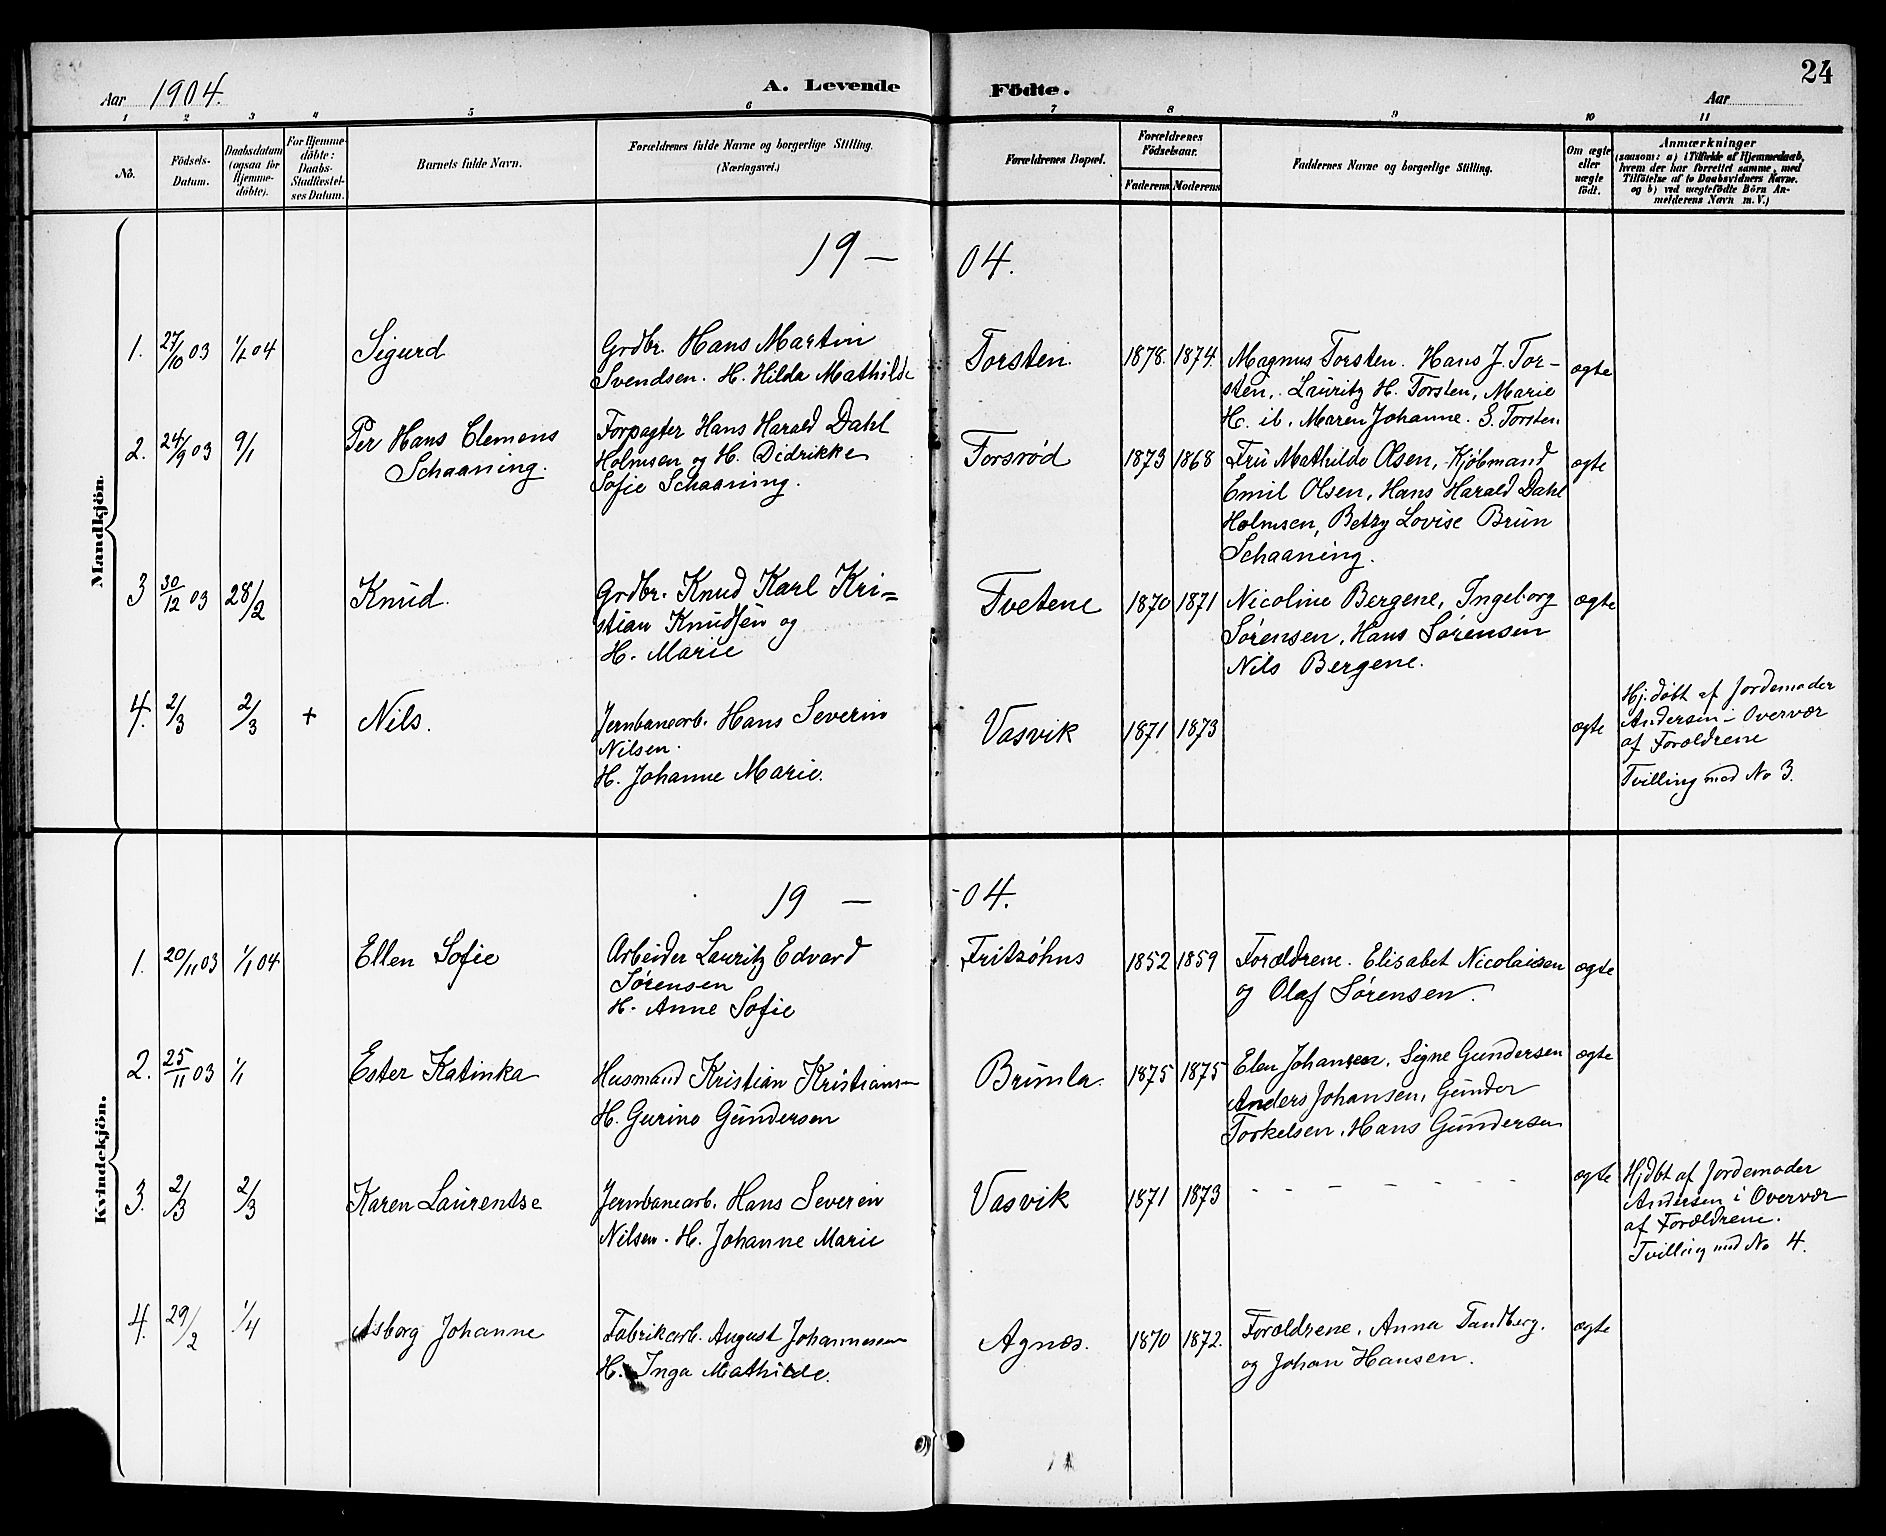 24
Aar 1904. A. Levende Födte. Aar
1 2 3 4 5 6 7 8 9 10 11
No.
Födsels-Datum.
Daabsdatum (ogsaa for Hjemmedöbte).
For Hjemmedöbte: Daabs-Stadfæstelses Datum.
Barnets fulde Navn.
Forældrenes fulde Navne og borgerlige Stilling. (Næringsvei.)
Forældrenes Bopæl.
Forældrenes Födselsaar.
Faderens Moderens
Faddernes Navne og borgerlige Stilling.
Om ægte eller uægte födt.
Anmærkninger
(saasom: a) i Tilfælde af Hjemmedaab,
hvem der har forrettet samme, med
Tilföielse af to Daabsvidners Navne.
og b) ved uægtefödte Börn An-
melderens Navn m. V.)
Mandkjön.
19 — 04.
1. 27/10 03 1/1 04 Sigurd Grdbr. Hans Martin Torsten. 1878. 1874. Magnus Torsten. Hans J. Tor- ægte
Svendsen. H. Hilda Mathilde sten, Lauritz H. Torsten, Marie
H. ib. Maren Johanne. S. Torsten.
2. 24/9 03 9/1 Per Hans Clemens Forpagter Hans Harald Dahl Torsrød 1873 1868 Fru Mathilde Olsen, Kjøbmand ægte
Schaaning. Holmsen og H. Didrikke Emil Olsen, Hans Harald Dahl
Sofie Schaaning. Holmsen, Betzy Lovise Brun
Schaaning.
3 30/12 03 28/2 Knud. Grdbr. Knud Karl Kri= Tvetene 1870 1871 Nicoline Bergene, Ingeborg ægte
stian Knudsen og Sørensen, Hans Sørensen
H. Marie Nils Bergene.
4. 2/3 2/3 + Nils. Jernbanearb. Hans Severin Vasvik 1871 1873 ægte Hj. døbt af Jordemoder
Nilsen. Andersen i Overvær
H. Johanne Marie. af Forældrene
Tvilling med No 3.
Kvindekjön.
19 — -04.
1. 20/11 03 1/1 04 Ellen Sofie Arbeider Lauritz Edvard Fritzøhus 1852 1859 Forældrene. Elisabet Nicolaisen ægte
Sørensen og Olaf Sørensen.
H. Anne Sofie
2. 25/11 03 1/1 Ester Katinka Husmand Kristian Kristiansen Brunla. 1875 1875 Johansen. Signe Gundersen ægte
H. Gurine Gundersen Anders Johansen, Gunder
Torkelsen, Hans Gundersen
3. 2/3 2/3 Karen Laurentse Jernbanearb. Hans Severin Vasvik 1871 1873 - - - - - - - ægte Hjdbt af Jordemoder
Nilsen. H. Johanne Marie Andersen i Overvær
af Forældrene.
Tvilling med No 4.
4. 29/2 1/4 Asborg Johanne Fabrikarb. August Johannessen Agnæs. 1870 1872. Forældrene, Anna Tandberg. ægte
H. Inga Mathilde. og Johan Hansen.